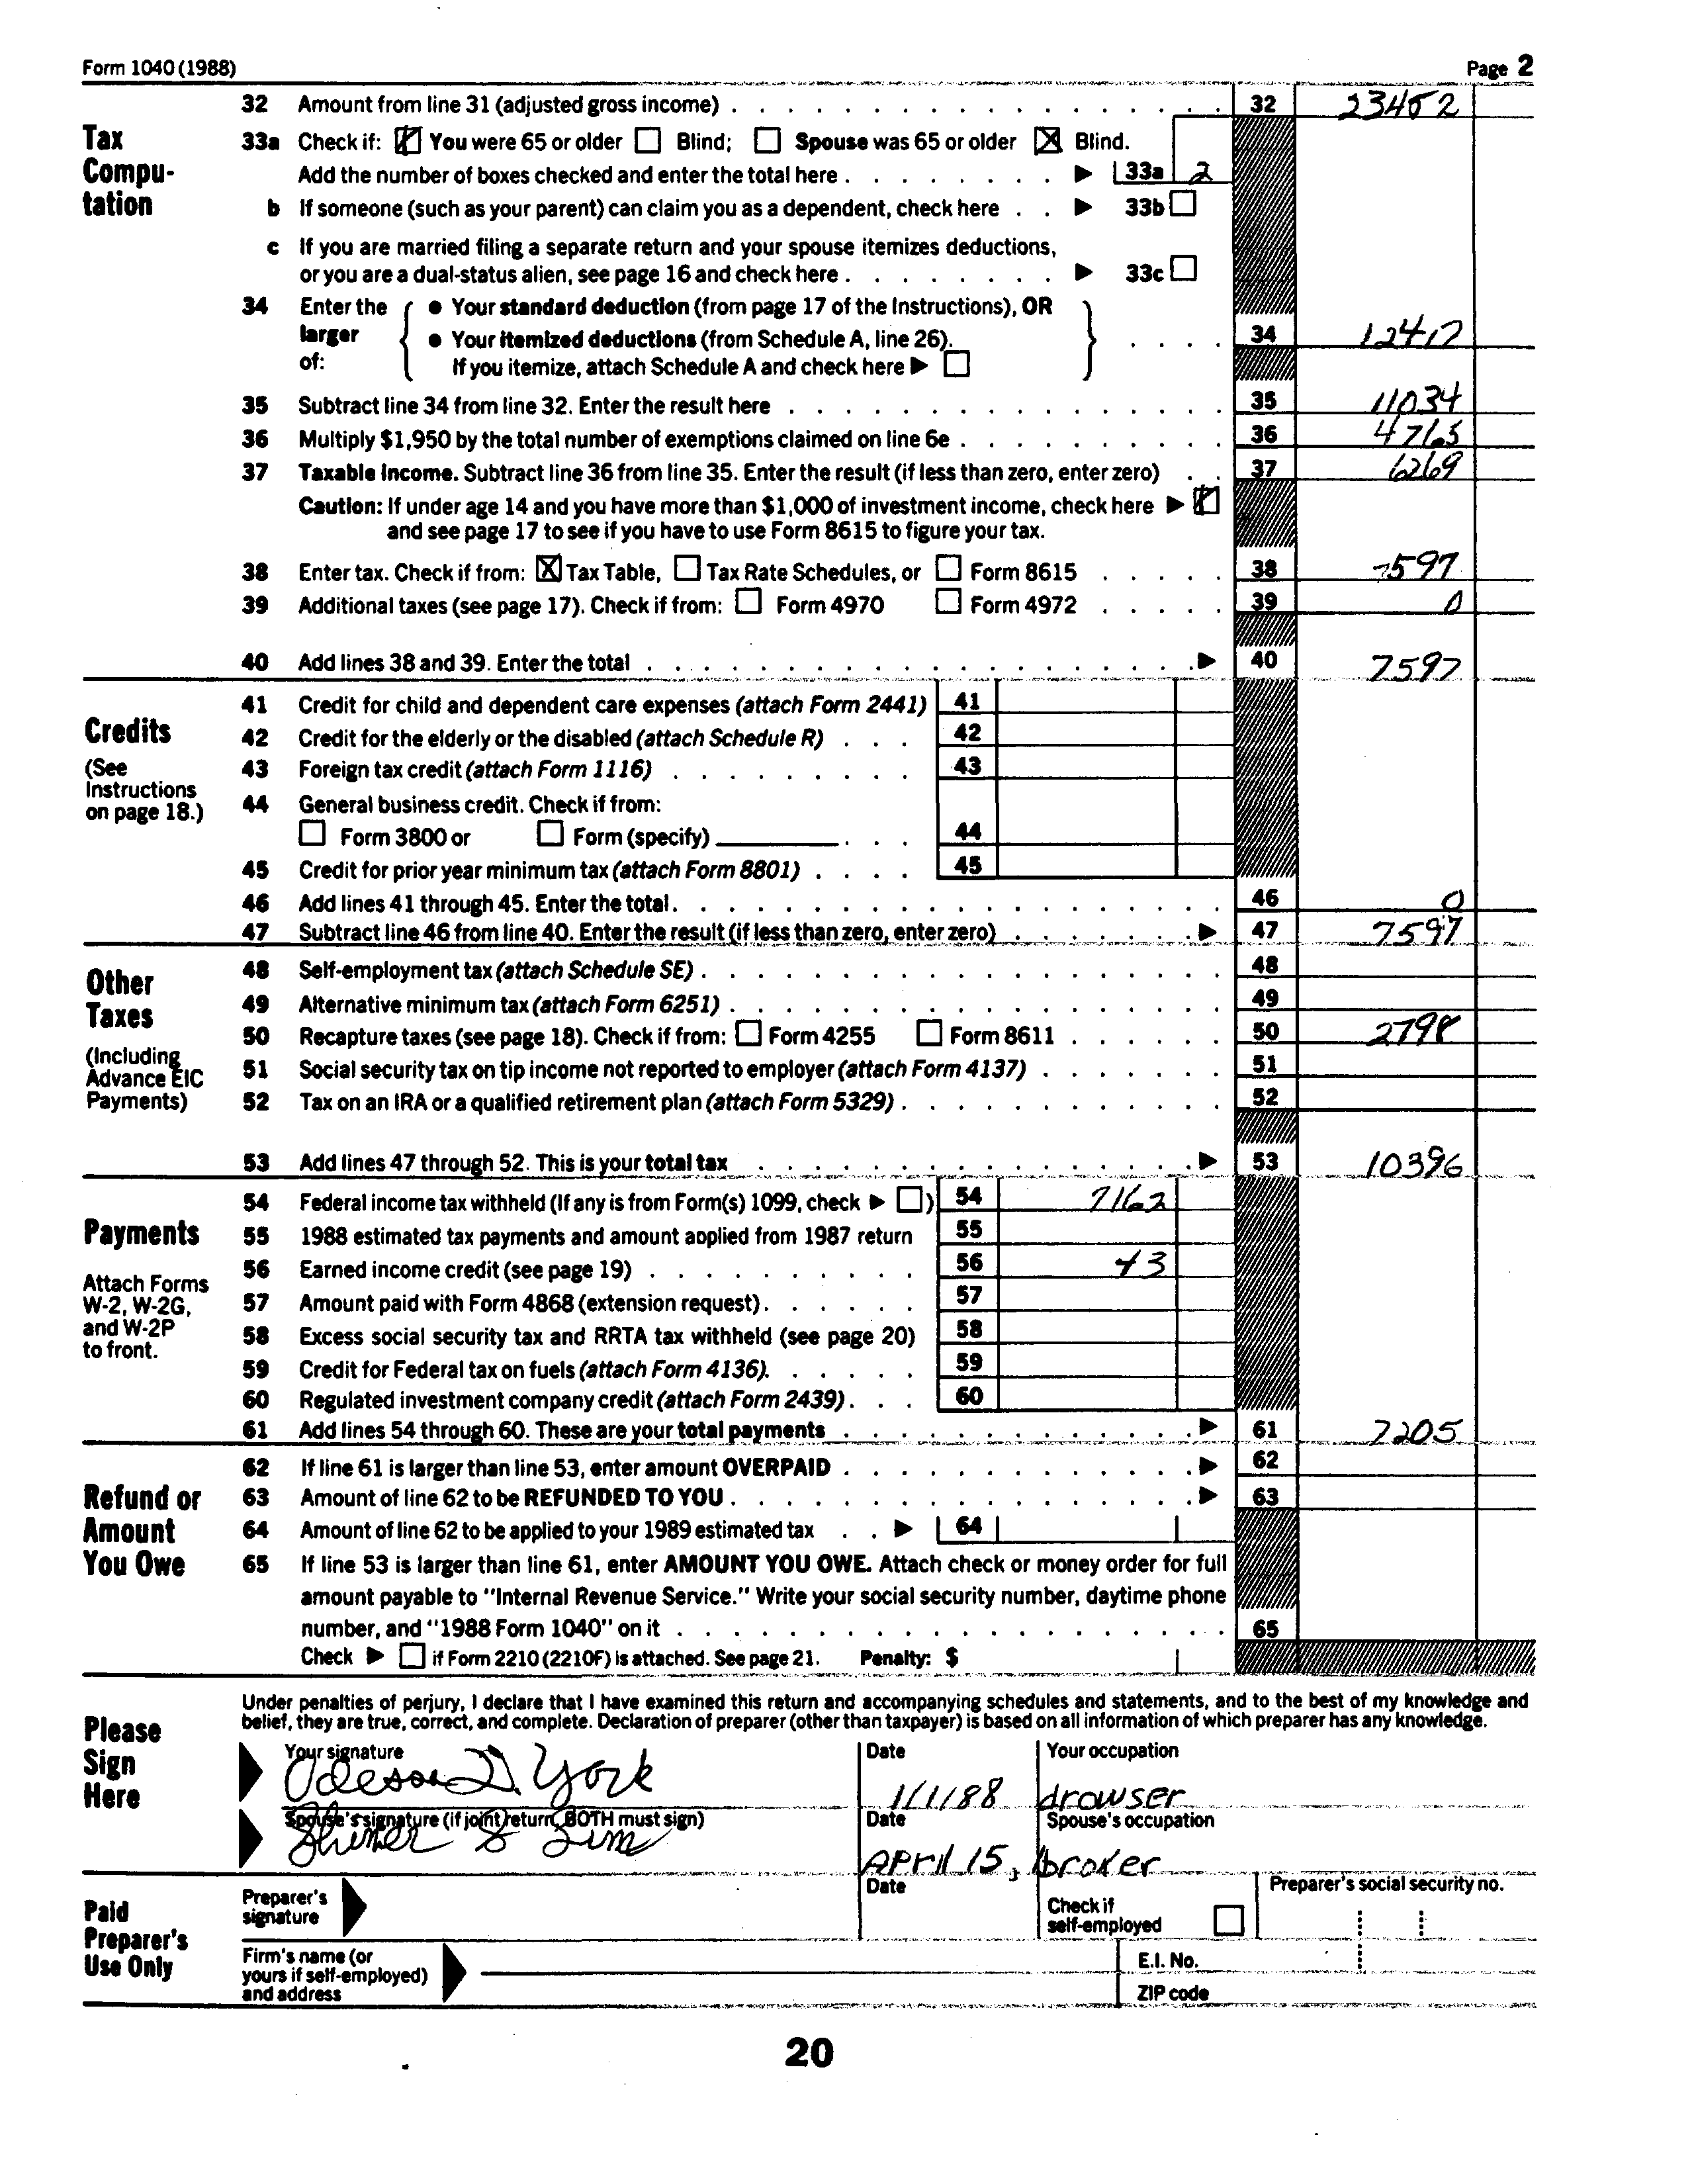 Form 1040 (1988) Page 2
32 Amount from line 31 (adjusted gross income) 32 23452
Tax Compu-tation
33a Check if: You were 65 or older Blind; Spouse was 65 or older Blind.
Add the number of boxes checked and enter the total here 33a 2
b If someone (such as your parent) can claim you as a dependent, check here 33b
c If you are married filing a separate return and your spouse itemizes deductions,
or you are a dual-status alien, see page 16 and check here 33c
34 Enter the larger of: • Your standard deduction (from page 17 of the Instructions), OR
• Your itemized deductions (from Schedule A, line 26). 34 12417
If you itemize, attach Schedule A and check here
35 Subtract line 34 from line 32. Enter the result here 35 11034
36 Multiply $1,950 by the total number of exemptions claimed on line 6e 36 4765
37 Taxable Income. Subtract line 36 from line 35. Enter the result (if less than zero, enter zero) 37 6269
Caution: If under age 14 and you have more than $1,000 of investment income, check here
and see page 17 to see if you have to use Form 8615 to figure your tax.
38 Enter tax. Check if from: Tax Table, Tax Rate Schedules, or Form 8615 38 7597
39 Additional taxes (see page 17). Check if from: Form 4970 Form 4972 39 0
40 Add lines 38 and 39. Enter the total 40 7597
Credits
(See Instructions on page 18.)
41 Credit for child and dependent care expenses (attach Form 2441) 41
42 Credit for the elderly or the disabled (attach Schedule R) 42
43 Foreign tax credit (attach Form 1116) 43
44 General business credit. Check if from:
Form 3800 or Form (specify) 44
45 Credit for prior year minimum tax (attach Form 8801) 45
46 Add lines 41 through 45. Enter the total 46 0
47 Subtract line 46 from line 40. Enter the result (if less than zero, enter zero) 47 7597
Other Taxes
(Including Advance EIC Payments)
48 Self-employment tax (attach Schedule SE) 48
49 Alternative minimum tax (attach Form 6251) 49
50 Recapture taxes (see page 18). Check if from: Form 4255 Form 8611 50 2798
51 Social security tax on tip income not reported to employer (attach Form 4137) 51
52 Tax on an IRA or a qualified retirement plan (attach Form 5329) 52
53 Add lines 47 through 52. This is your total tax 53 10396
Payments
Attach Forms W-2, W-2G, and W-2P to front.
54 Federal income tax withheld (If any is from Form(s) 1099, check ) 54 7162
55 1988 estimated tax payments and amount applied from 1987 return 55
56 Earned income credit (see page 19) 56 43
57 Amount paid with Form 4868 (extension request) 57
58 Excess social security tax and RRTA tax withheld (see page 20) 58
59 Credit for Federal tax on fuels (attach Form 4136) 59
60 Regulated investment company credit (attach Form 2439) 60
61 Add lines 54 through 60. These are your total payments 61 7205
Refund or Amount You Owe
62 If line 61 is larger than line 53, enter amount OVERPAID 62
63 Amount of line 62 to be REFUNDED TO YOU 63
64 Amount of line 62 to be applied to your 1989 estimated tax 64
65 If line 53 is larger than line 61, enter AMOUNT YOU OWE. Attach check or money order for full
amount payable to "Internal Revenue Service." Write your social security number, daytime phone
number, and "1988 Form 1040" on it 65
Check if Form 2210 (2210F) is attached. See page 21. Penalty: $
Please Sign Here
Under penalties of perjury, I declare that I have examined this return and accompanying schedules and statements, and to the best of my knowledge and
belief, they are true, correct, and complete. Declaration of preparer (other than taxpayer) is based on all information of which preparer has any knowledge.
Your signature Date Your occupation
Odessa D. York 1/1/88 drowser
Spouse's signature (if joint return, BOTH must sign) Date Spouse's occupation
S Sim April 15, broker
Paid Preparer's Use Only
Preparer's signature Date Check if self-employed Preparer's social security no.
Firm's name (or yours if self-employed) and address E.I. No.
ZIP code
20